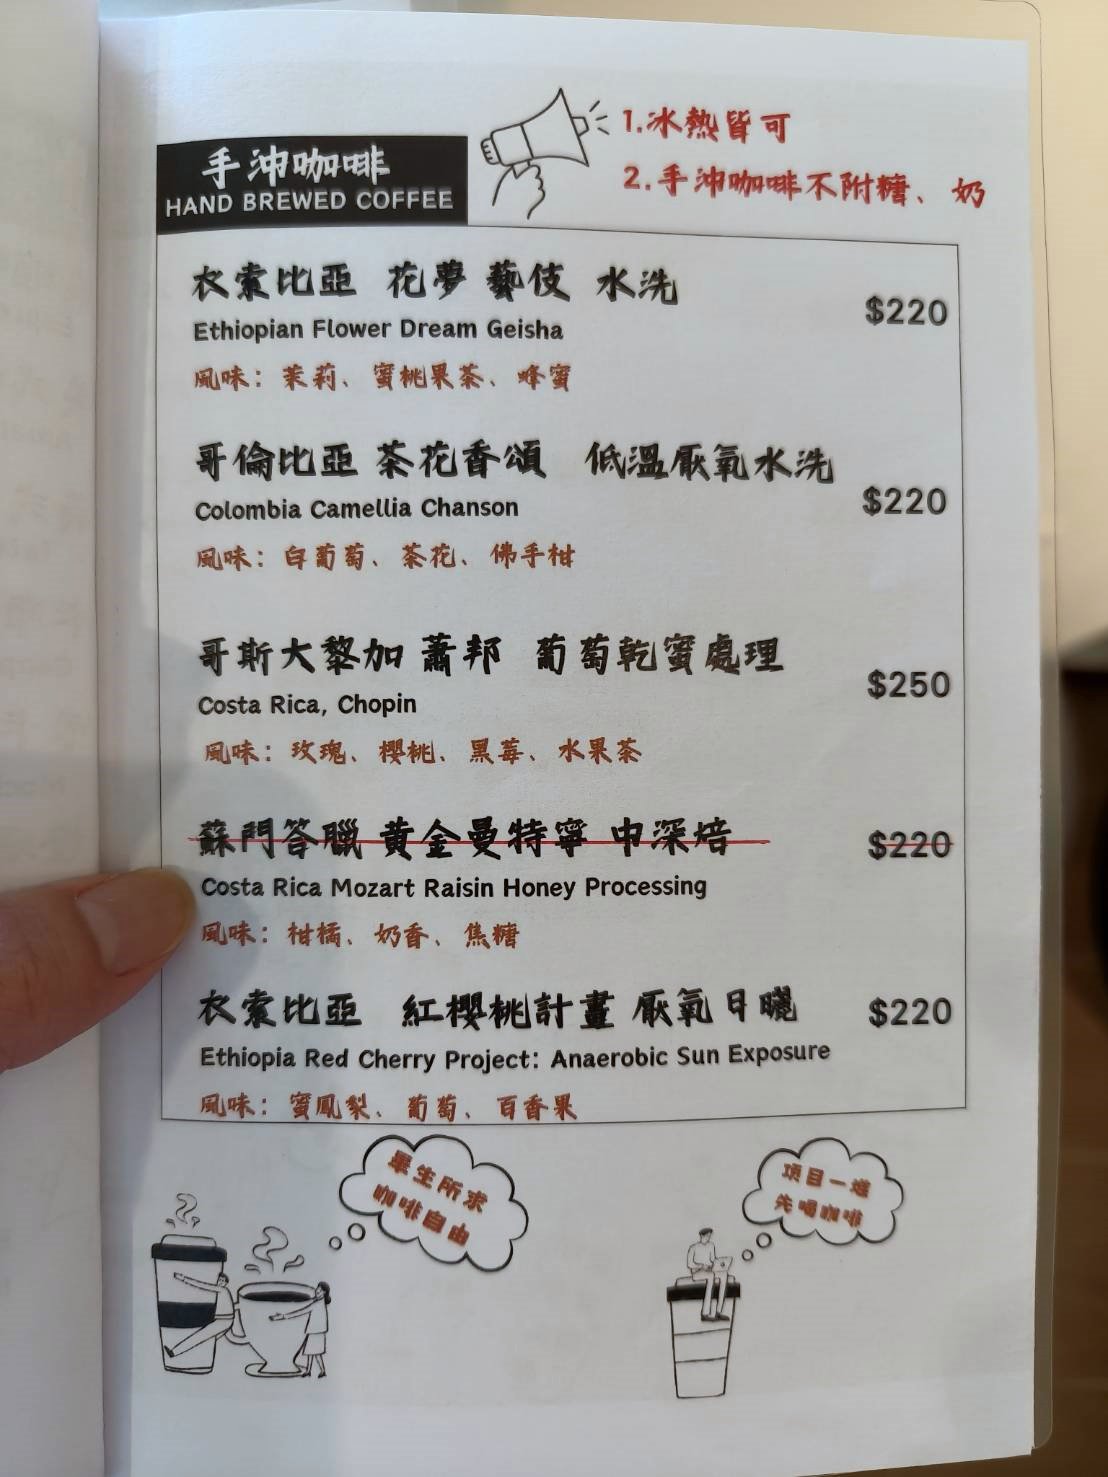 手沖咖啡
HAND BREWED COFFEE
1.冰熱皆可
2.手沖咖啡不附糖、奶
衣索比亞 花夢 藝伎 水洗
$220
Ethiopian Flower Dream Geisha
風味：茉莉、蜜桃果茶、蜂蜜
哥倫比亞 茶花香頌 低溫厭氧水洗
$220
Colombia Camellia Chanson
風味：白葡萄、茶花、佛手柑
哥斯大黎加 蕭邦 葡萄乾蜜處理
$250
Costa Rica, Chopin
風味：玫瑰、櫻桃、黑莓、水果茶
蘇門答臘 黃金曼特寧 中深焙
$220
Costa Rica Mozart Raisin Honey Processing
風味：柑橘、奶香、焦糖
衣索比亞 紅櫻桃計畫 厭氧日曬
$220
Ethiopia Red Cherry Project: Anaerobic Sun Exposure
風味：蜜鳳梨、葡萄、百香果
畢生所求
咖啡自由
項目一堆
先喝咖啡